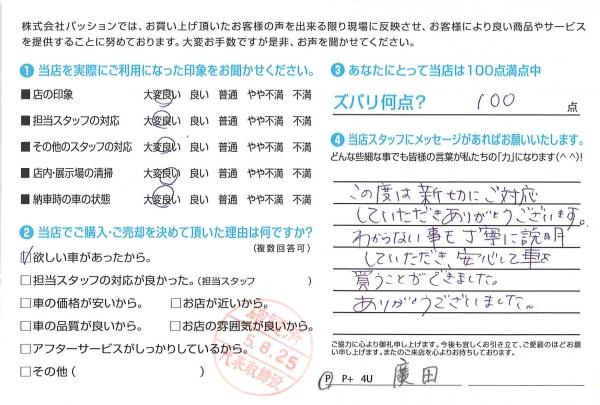 株式会社パッションでは、お買い上げ頂いたお客様の声を出来る限り現場に反映させ、お客様により良い商品やサービス
を提供することに努めております。大変お手数ですが是非、お声を聞かせてください。
❶ 当店を実際にご利用になった印象をお聞かせください。
■ 店の印象 大変良い 良い 普通 やや不満 不満
■ 担当スタッフの対応 大変良い 良い 普通 やや不満 不満
■ その他のスタッフの対応 大変良い 良い 普通 やや不満 不満
■ 店内・展示場の清掃 大変良い 良い 普通 やや不満 不満
■ 納車時の車の状態 大変良い 良い 普通 やや不満 不満
❷ 当店でご購入・ご売却を決めて頂いた理由は何ですか?
(複数回答可)
☑欲しい車があったから。
□担当スタッフの対応が良かった。(担当スタッフ )
□車の価格が安いから。 □お店が近いから。
□車の品質が良いから。 □お店の雰囲気が良いから。
□アフターサービスがしっかりしているから。
□その他( )
確認所
5.8.25
代表取締役
❸ あなたにとって当店は100点満点中
ズバリ何点? 100 点
❹ 当店スタッフにメッセージがあればお願いいたします。
どんな些細な事でも皆様の言葉が私たちの「力」になります(^^)!
この度は新切にご対応
していただきありがとうございます。
わからない事も丁寧に説明
していただき、安心して車を
買うことができました。
ありがとうございました。
ご協力に心より御礼申し上げます。今後も宜しくお引き立て、ご愛顧のほどお願
い申し上げます。またのご来店を心よりお待ちしております。
P P+ 4U 廣田